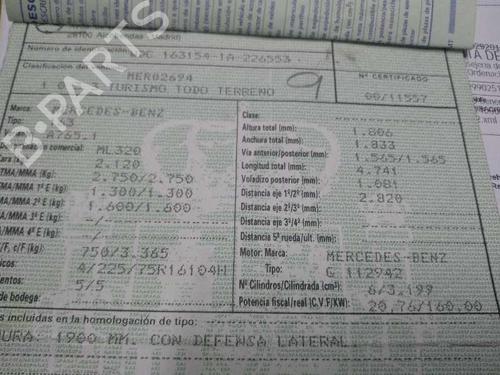 28100 Al
(Madrid)
Número de identificación
WDC 163154-1A-226553
Clasificación del
MER02694
TURISMO TODO TERRENO
9
Nº CERTIFICADO
00/11557
B-PARTS
Marca:
MERCEDES-BENZ
Tipo:
163
A765.1
comercial:
ML320
2.120
TMA/MMA (kg):
2.750/2.750
MA/MMA 1º E (kg):
1.300/1.300
MA/MMA 2º E (kg):
1.600/1.600
MA/MMA 3º E (kg):
-/-
A/MMA 4º E (kg):
-/-
/F, c/F (kg):
750/3.365
icos
4/225/75R16104H
entos:
5/5
de bodega:
-
Clase:
Altura total (mm):
1.806
Anchura total (mm):
1.833
Vía anterior/posterior (mm):
1.565/1.565
Longitud total (mm):
4.741
Voladizo posterior (mm):
1.081
Distancia eje 1º/2º (mm):
2.820
Distancia eje 2º/3º (mm):
Distancia eje 3º/4º (mm):
Distancia 5ª rueda/ult. (mm):
Motor: Marca:
MERCEDES-BENZ
Tipo:
G 112942
Nº Cilindros/Cilindrada (cm³)
6/3.199
Potencia fiscal/real (C.V.F/KW)
20,76/160.00
s incluidas en la homologación de tipo:
URA: 1900 MM. CON DEFENSA LATERAL.